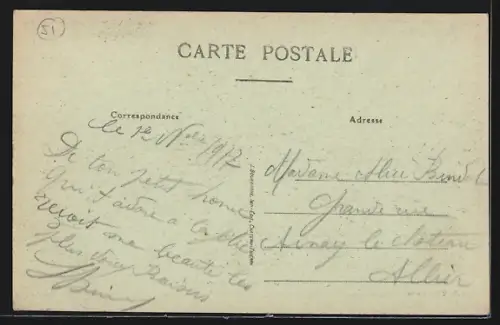 51
CARTE POSTALE
Correspondance
Adresse
le 12 Nov 1917
De ton petit homme
Qui t'adore à la folie
reçoit ma beauté les
plus doux baisers
Madame Alice
Grande rue
Ainay le château
Allier